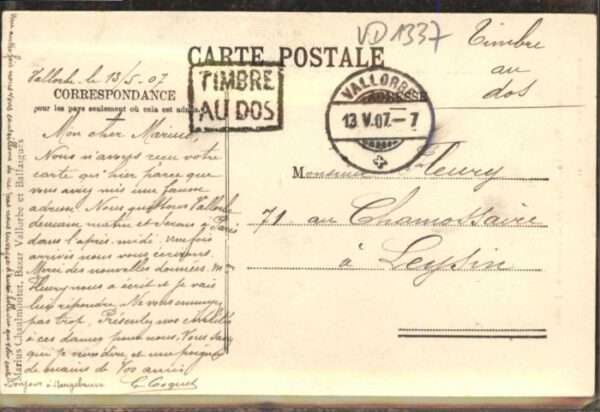 VD 1337
Timbre
au
dos
CARTE POSTALE
Vallorbe le 13/5.07
TIMBRE
AU DOS
VALLORBE
13.V.07.-7
CORRESPONDANCE
ADRESSE
pour les pays seulement où cela est admis
Mon cher Marius,
Nous n'avons reçu votre
carte qu'hier parce que
vous aviez mis une fausse
adresse. Nous quittons Vallorbe
demain matin et serons à Paris
dans l'après-midi. une fois
arrivés nous vous écrirons.
Merci des nouvelles données. M.
Fleury nous a écrit et je vais
lui répondre. Ne vous ennuyez
pas trop. Présentez nos
à ces dames pour nous. Vous
que je vous dire, et une poignée
de mains de vos amis
Monsieur Fleury
71 au Chamossaire
à Leysin
Marius Chaulmontet, Bazar Vallorbe et Ballaigues